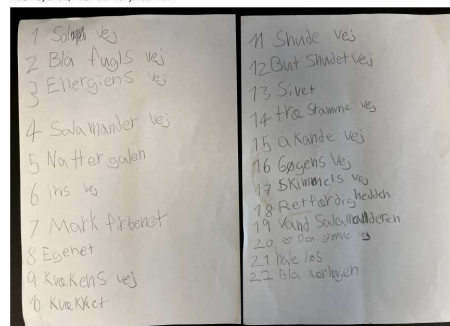 1 Solens vej
2 Blå fugls vej
3 Energiens vej
4 Salamander vej
5 Nattergalen
6 iris vej
7 Mark firbenet
8 Egenet
9 Kvækens vej
10 Kvækket
11 Snude vej
12 But Snudet vej
13 Sivet
14 træ stamme vej
15 åkande vej
16 Gøgens vej
17 Skimmels vej
18 Retfærdighedden
19 Vand Salamanderen
20 vej
21 hale løs
22 Blå